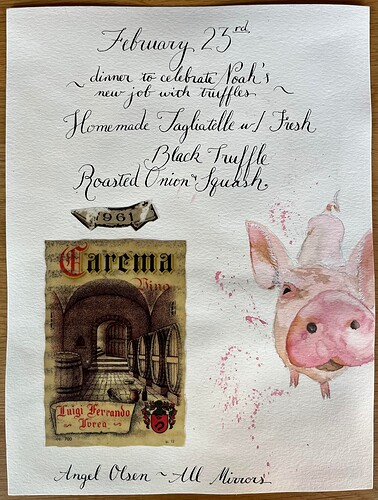 February 23rd
~ dinner to celebrate Noah's
new job with truffles ~
Homemade Tagliatelle w/ Fresh
Black Truffle
Roasted Onion & Squash
1961
Carema
Vino
Luigi Ferrando
Ivrea
Angel Olsen ~ All Mirrors